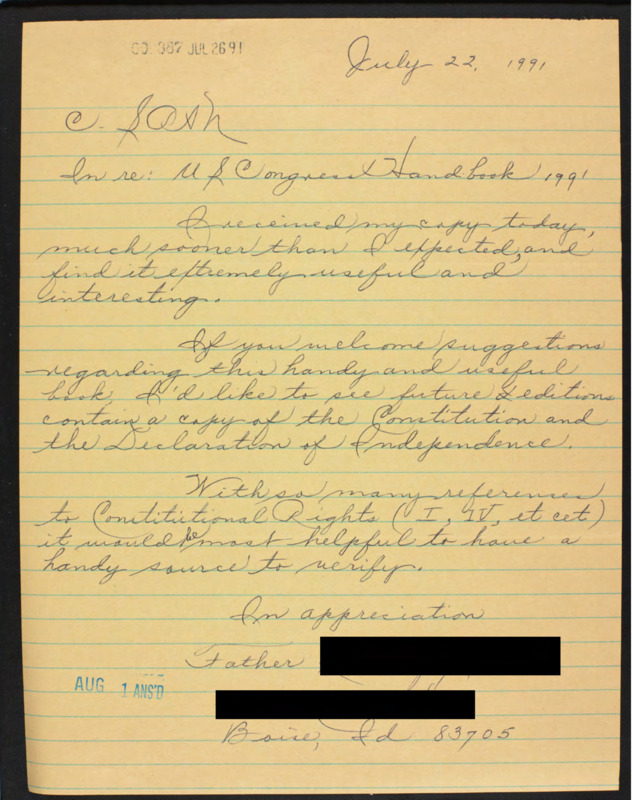 CO. 367 JUL 26 91
July 22, 1991
C-SPAN
In re: US Congress Handbook 1991
I received my copy today,
much sooner than I expected, and
find it extremely useful and
interesting.
If you welcome suggestions
regarding this handy and useful
book, I'd like to see future editions
contain a copy of the Constitution and
the Declaration of Independence.
With so many references
to Constitutional Rights (I, IV, et cet)
it would be most helpful to have a
handy source to verify.
In appreciation
Father
AUG 1 ANS'D
Boise, Id 83705